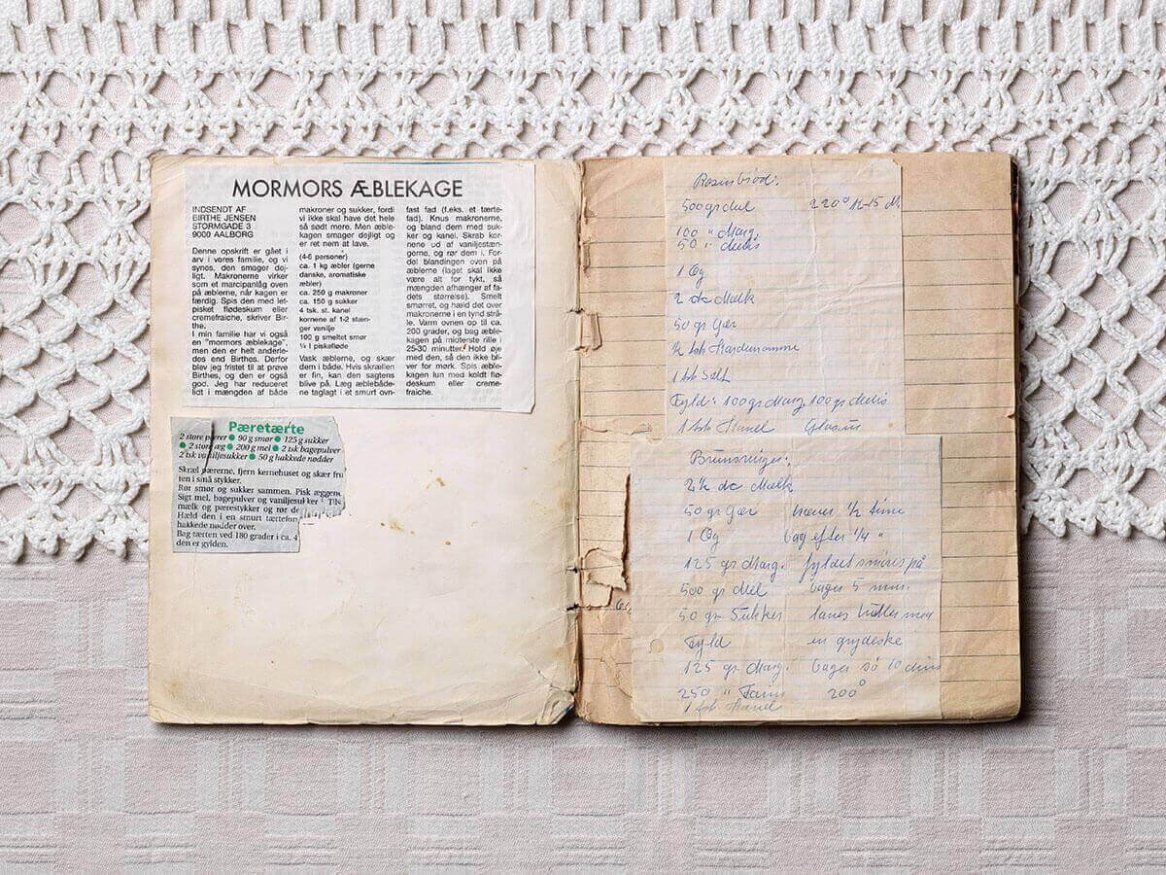 MORMORS ÆBLEKAGE
INDSENDT AF
BIRTHE JENSEN
STORMGADE 3
9000 AALBORG
Denne opskrift er gået i
arv i vores familie, og vi
synes, den smager dej-
ligt. Makronerne virker
som et marcipanlåg oven
på æblerne, når kagen er
færdig. Spis den med let-
pisket flødeskum eller
cremefraiche, skriver Bir-
the.
I min familie har vi også
en "mormors æblekage",
men den er helt anderle-
des end Birthes. Derfor
blev jeg fristet til at prøve
Birthes, og den er også
god. Jeg har reduceret
lidt i mængden af både
makroner og sukker, fordi
vi ikke skal have det hele
så sødt mere. Men æble-
kagen smager dejligt og
er ret nem at lave.
(4-6 personer)
ca. 1 kg æbler (gerne
danske, aromatiske
æbler)
ca. 250 g makroner
ca. 150 g sukker
4 tsk. st. kanel
kornene af 1-2 stæn-
ger vanilje
100 g smeltet smør
¼ l piskefløde
Vask æblerne, og skær
dem i både. Hvis skrællen
er fin, kan den sagtens
blive på. Læg æblebåde-
ne taglagt i et smurt ovn-
fast fad (f.eks. et tærte-
fad). Knus makronerne,
og bland dem med suk-
ker og kanel. Skrab kor-
nene ud af vaniljestæn-
gerne, og rør dem i. For-
del blandingen oven på
æblerne (laget skal ikke
være alt for tykt, så
mængden afhænger af fa-
dets størrelse). Smelt
smørret, og hæld det over
makronerne i en tynd strå-
le. Varm ovnen op til ca.
200 grader, og bag æble-
kagen på midterste rille i
25-30 minutter. Hold øje
med den, så den ikke bli-
ver for mørk. Spis æble-
kagen lun med koldt flø-
deskum eller creme-
fraiche.
Pæretærte
2 store pærer ● 90 g smør ● 125 g sukker
● 2 store æg ● 200 g mel ● 2 tsk bagepulver
2 tsk vaniljesukker ● 50 g hakkede nødder
Skræl pærerne, fjern kernehuset og skær fru
ten i små stykker.
Rør smør og sukker sammen. Pisk æggene
Sigt mel, bagepulver og vaniljesukker
mælk og pærestykker og rør de
Hæld den i en smurt tærtefor
hakkede nødder over.
Bag tærten ved 180 grader i ca. 4
den er gylden.
Rosinbrød:
500 gr Mel 220° 12-15 M.
100 " Marg.
50 " Melis
1 Æg
2 dc Mælk
50 gr Gær
½ tsk Kardemomme
1 tsk Salt
Fyld: 100 gr Marg 100 gr Melis
1 tsk Kanel Glasur
Brunsviger:
2½ dc Mælk
50 gr Gær hæves ½ time
1 Æg bag efter ¼ "
125 gr Marg. fyldet smøres på
500 gr Mel bages 5 min.
50 gr Sukker laves huller med
Fyld en grydeske
125 gr Marg. bages så 10 min
250 " Farin 200°
1 tsk Kanel